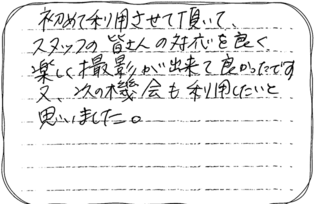 初めて利用させて頂いて、
スタッフの皆さんの対応を良く
楽しく撮影が出来て良かったです
又、次の機会も利用したいと
思いました。